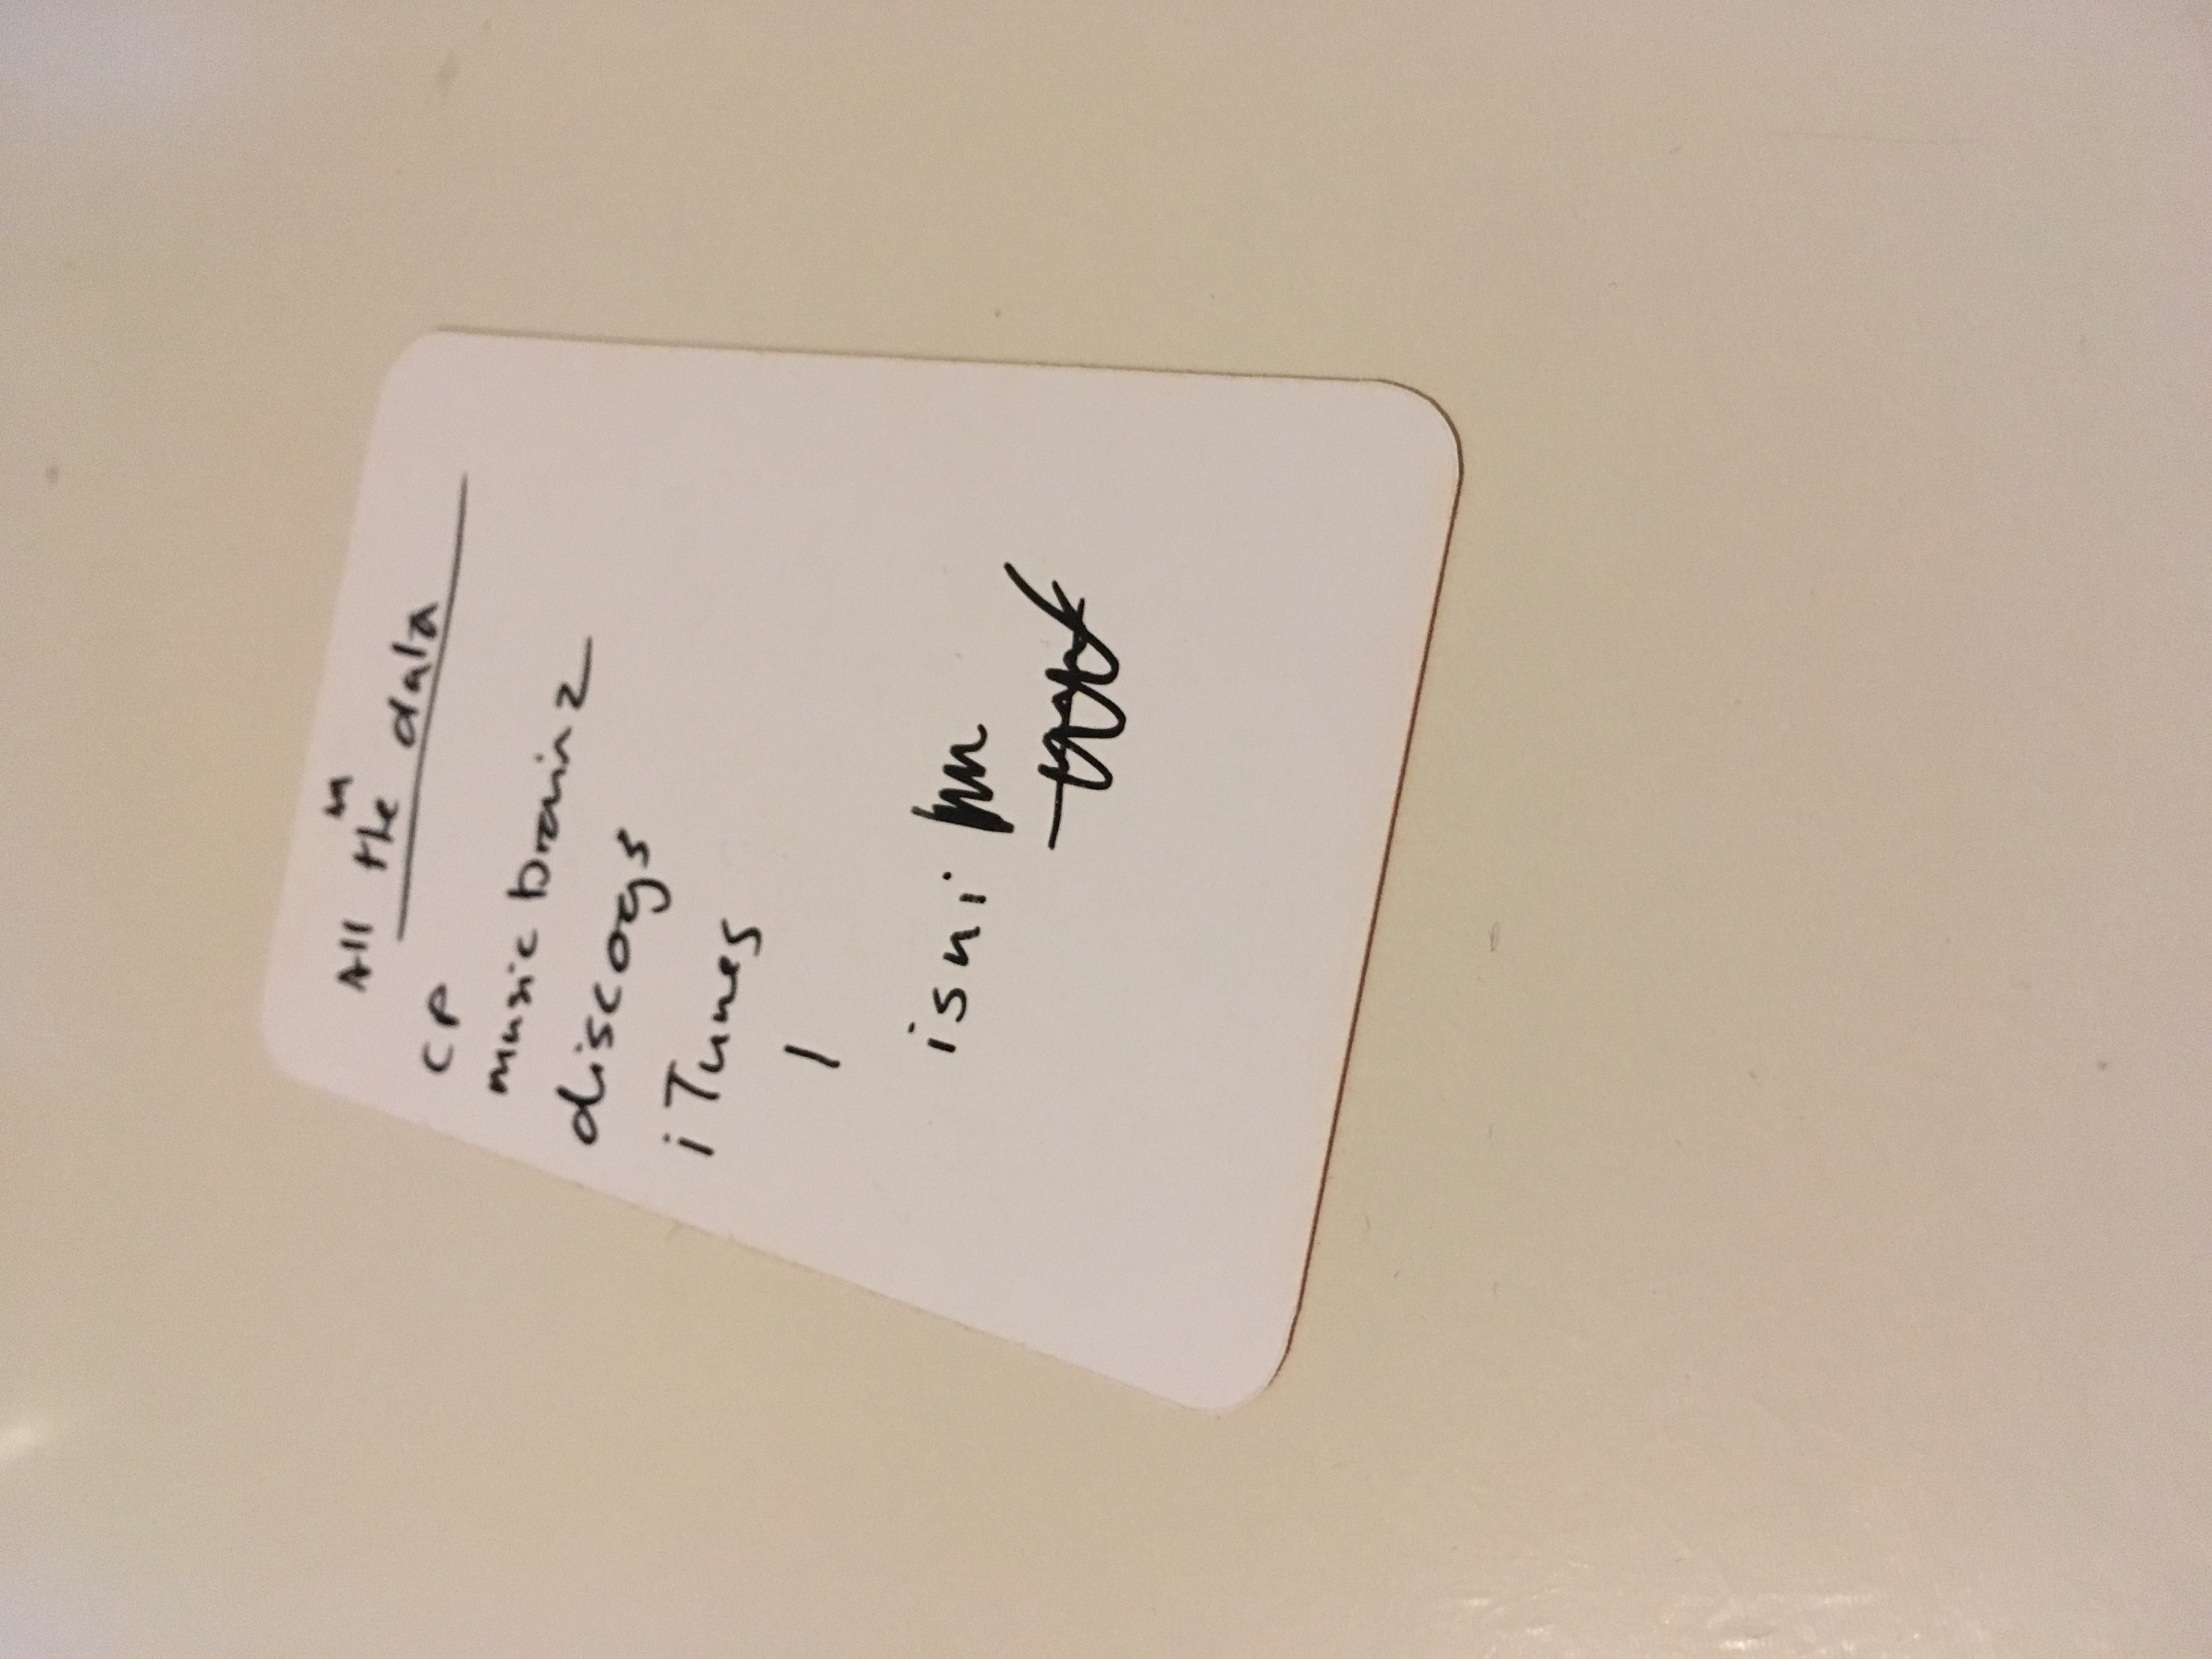 All the data
CP
music brainz
discogs
iTunes
|
isni